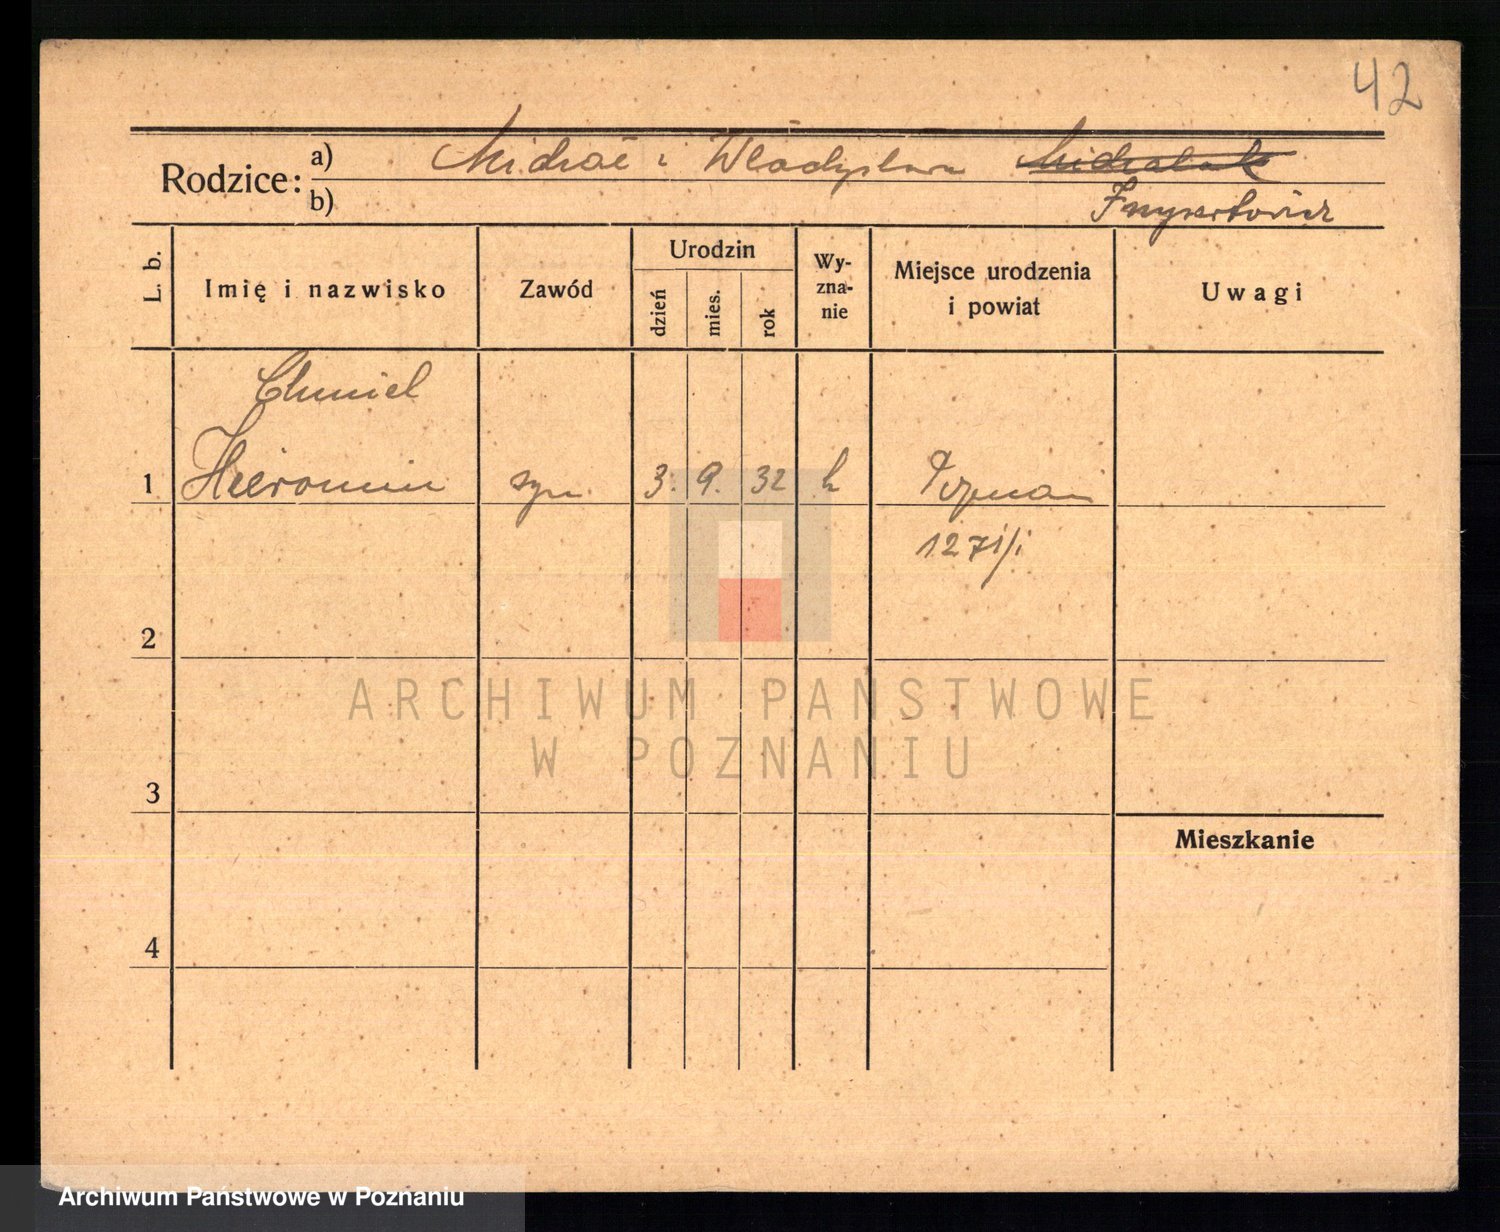 42
Rodzice:
a) Michał i Władysława Michalak
b)
L. b.
Imię i nazwisko
Zawód
Urodzin
dzień
mies.
rok
Wy-
zna-
nie
Miejsce urodzenia
i powiat
Uwagi
Chmiel
1 Hieronim syn 3. 9. 32 k Poznań
2
3
4
Mieszkanie
ARCHIWUM PAŃSTWOWE
W POZNANIU
Archiwum Państwowe w Poznaniu